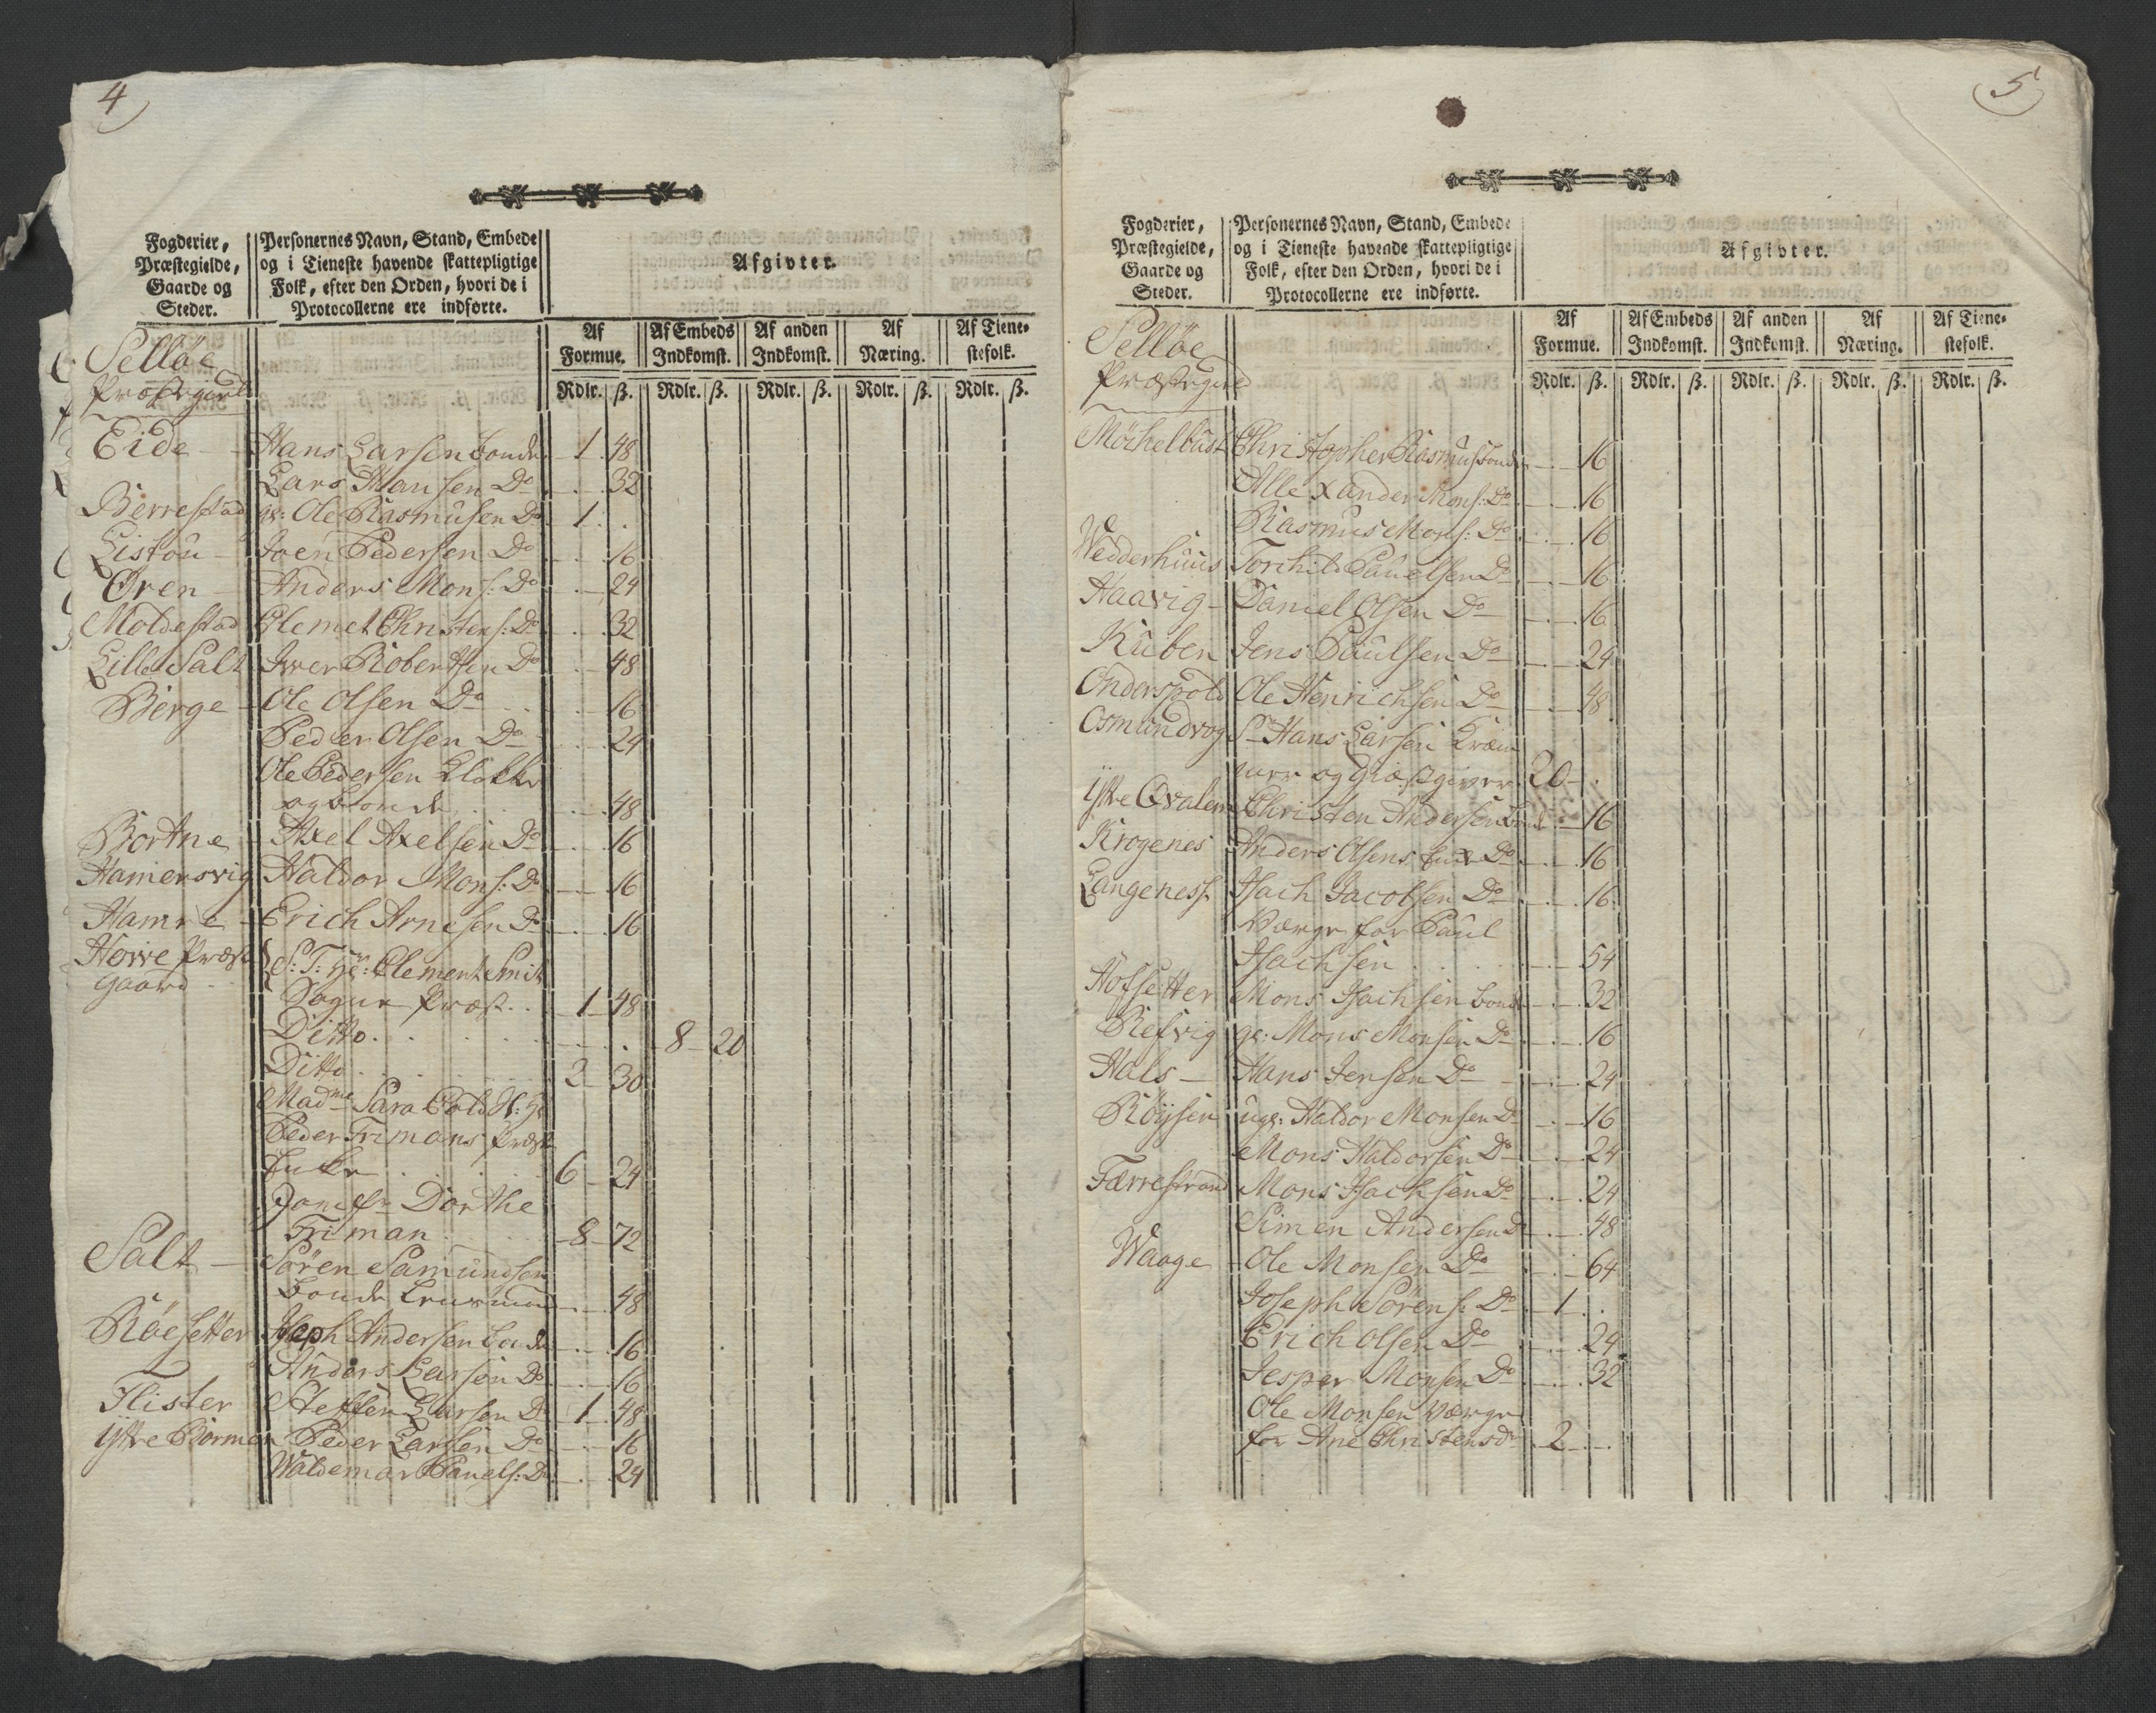 4
Fogderier,
Præstegielde,
Gaarde og
Steder.
Personernes Navn, Stand, Embede
og i Tieneste havende skattepligtige
Folk, efter den Orden, hvori de i
Protocollerne ere indførte.
Afgivter.
Af Formue. Af Embeds Indkomst. Af anden Indkomst. Af Næring. Af Tienestefolk.
Rdlr. ß. Rdlr. ß. Rdlr. ß. Rdlr. ß. Rdlr. ß.
Selløe
Præstegield
Eide Hans Larsen bonde 1 48
Lars Hansen Do 32
Berrestad gl: Ole Rasmusen Do 1
Listou Joen Pedersen Do 16
Øren Anders Mons: Do 24
Moldestad Clemet Christens: Do 32
Lille Salt Iver Robertsen Do 48
Berge Ole Olsen Do 16
Peder Olsen Do 24
Ole Pedersen Klokker
og bonde 48
Bortne Axel Axelsen Do 16
Hamersvig Haldor Mons: Do 16
Hamre Erich Arnesen Do 16
Horre Præste S: T: Hr: Clement Smit
gaard
Sogne Præst 1 48
Ditto 8 20
Ditto 2 30
Madme Sara Cold Hr:
Peder Frimans Præste
Enke 6 24
Jomfr Dorthe
Friman 8 72
Salt Søren Samundsen
bonde Lensmand 48
Røesetter Joseph Andersen bonde 16
Anders Larsen Do 16
Flister Steffen Larsen Do 1 48
ÿttre Børmen Peder Larsen Do 16
Waldemar Pauels: Do 24
5
Fogderier,
Præstegielde,
Gaarde og
Steder.
Personernes Navn, Stand, Embede
og i Tieneste havende skattepligtige
Folk, efter den Orden, hvori de i
Protocollerne ere indførte.
Afgivter.
Af Formue. Af Embeds Indkomst. Af anden Indkomst. Af Næring. Af Tienestefolk.
Rdlr. ß. Rdlr. ß. Rdlr. ß. Rdlr. ß. Rdlr. ß.
Selløe
Præstegield
Møchelbust Christopher Rasmus: bonde 16
Allexander Mons: Do 16
Rasmus Mons: Do 16
Wedderhuus Torchild Pauelsen Do 16
Haavig Daniel Olsen Do 16
Kuben Jens Paulsen Do 24
Onderspold Ole Henrichsen Do 48
Osmundvog Sr Hans Larsen Kræm
mer og Giæstgiver 20
ÿttre Qvalem Christen Andersen bonde 16
Krogenes Anders Olsens Enke Do 16
Langeness Isach Jacobsen Do 16
Værge for Paul
Isachsen 54
Hofsetter Mons Isachsen bonde 32
Refvig gl: Mons Monsen Do 16
Hals Hans Jensen Do 24
Røÿsen ung: Haldor Monsen Do 16
Mons Haldorsen Do 24
Færrestrand Mons Isachsen Do 24
Simen Andersen Do 48
Waage Ole Monsen Do 64
Joseph Sørens: Do 1
Erich Olsen Do 24
Jesper Monsen Do 32
Ole Monsen Værge
for Ane Christensdr 2